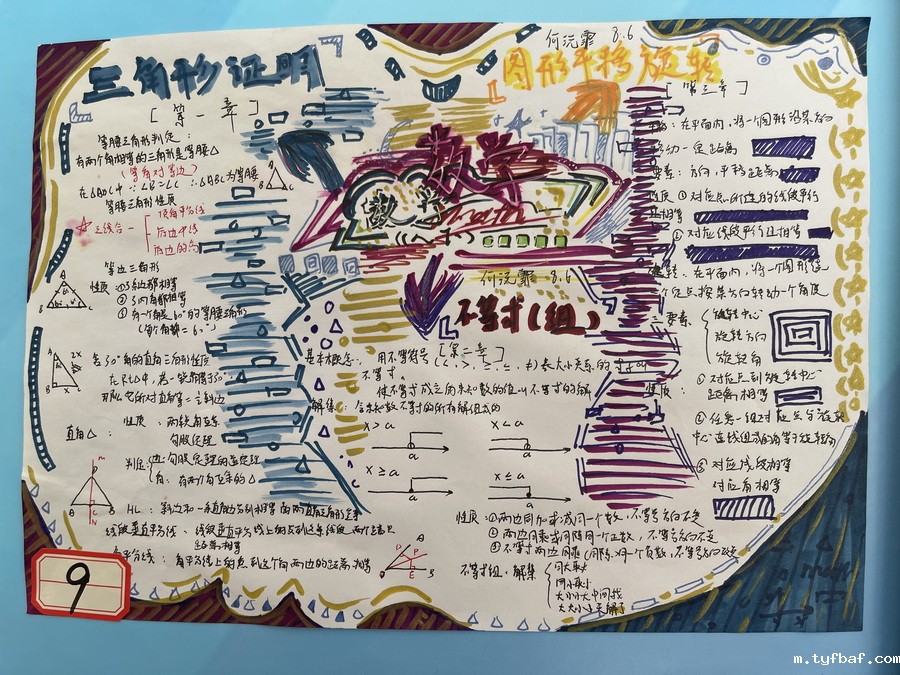 何沅霏 8.6
三角形证明
[第一章]
等腰三角形判定:
有两个角相等的三角形是等腰△
(等角对等边)
在△ABC中 ∵∠B=∠C ∴△ABC为等腰
等腰三角形性质
三线合一
顶角平分线
底边中线
底边的高
等边三角形
性质 ①3条边都相等
②3个角都相等
③有一个角是60°的等腰三角形
(每个角都=60°)
含30°角的直角三角形性质
在Rt△中,若一锐角等于30°
直角△: 性质: 两锐角互余
勾股定理
判定: 边:勾股定理的逆定理
角:有两个角互余的△
HL: 斜边和一条直角边分别相等的两直角三角形全等
线段垂直平分线:
距离相等
角平分线: 角平分线上的点到这个角两边的距离相等
数学
数学
math
何沅霏 8.6
不等式(组)
[第二章]
基本概念: 用不等号
不等式
使不等式成立的未知数的值叫不等式的解
解集: 含未知数不等式的所有解组成的
x>a
x<a
a
a
x≥a
x≤a
a
a
性质: ①两边同加或减同一个数,不等号方向不变
②两边同乘或同除同一个正数,不等号方向不变
③不等式两边同乘(同除)以一个负数,不等号方向改变
不等式组:解集
同大取大
同小取小
大小小大中间找
大大小小无解了
图形平移旋转
[第三章]
平移:在平面内,将一个图形沿某的
移动一定距离
要素:方向,平移距离
性质 ①对应点所连的线段平行
且相等
②对应线段平行且相等
旋转:在平面内,将一个图形绕
一个定点按某方向转动一个角度
三要素
旋转中心
旋转方向
旋转角
性质:
①对应点到旋转中心
距离相等
②任意一组对应点与旋转
中心连线组成的角等于旋转角
③对应线段相等
对应角相等
9
m.tyfbaf.com